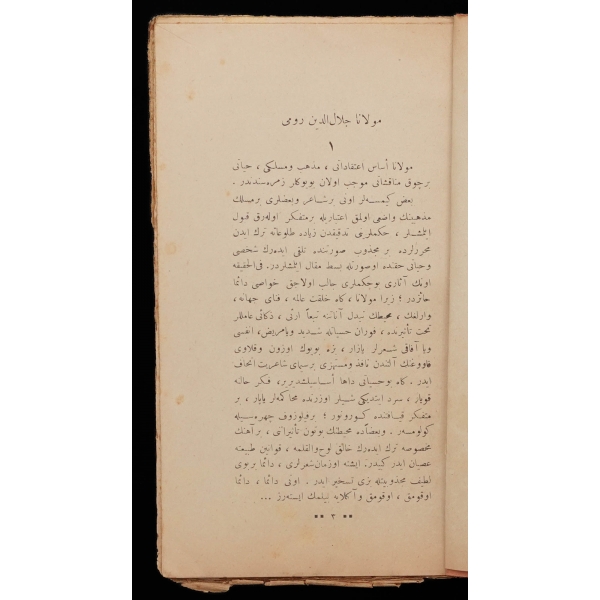 مولانا جلال‌الدین رومی
١
مولانا أساس اعتقاداتی ، مذهب ومسلکی ، حیاتی
برچوق مناقشاتی موجب اولان بویوکلر زمره‌سندندر .
بعض کیمسه‌لر اونی برشاعر وبعضلری برمسلك
مذهبینك واضعی اولمق اعتباریله برمتفکر اوله‌رق قبول
ایتمشلر ، حکملرینی تدقیقدن زیاده طلوعاته ترك ایدن
محررلرده بر مجذوب صورتنده تلقی ایده‌رك شخصی
وحیاتی حقنده اوصورتله بسط مقال ایتمشلردر. فی‌الحقیقه
اونك آثاری بوحکملری جالب اولاجق خواصی دائما
حائزدر ؛ زیرا مولانا ، کاه خلقت عالمه ، فنای جهانه ،
وارلغك ، محیطك تبدل آناتنه تبعاً ارثی ، ذکائی عاملر
تحت تأثیرنده ، فوران حسیاتله شدید ویامریض، انفسی
ویا آفاقی شعرلر یازار ، بزه بویوك اوزون وقلاوی
قاووغنك آلتندن نافذ ومستهزی برسیمای شاعریت اتحاف
ایدر . کاه بوحسیاتی داها أساسلشدیریر، فکر حالنه
قویار ، سرد ایتدیکی شیلر اوزرنده محاکمه‌لر یاپار ، بر
متفکر قیافتنده کورونور ؛ برفیلوزوف چهره‌سیله
کولومسر . وبعضاًده محیطك بوتون تأثیراتی ، برآهنك
مخصوصه ترك ایده‌رك خالق لوح‌والقلمه ، قوانین طبیعته
عصیان ایدر کیدر. ایشته اوزمان‌شعرلری ، دائما بربوی
لطیف مجذوبیتله بزی تسخیر ایدر . اونی دائما ، دائما
اوقومق ، اوقومق وآکلایه بیلمك ایسته‌رز ...
٣